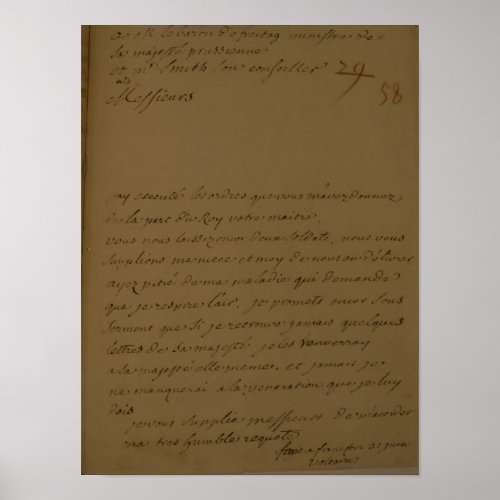 a M le baron de freitag ministre de sa
sa majesté prussienne
et mr Smith son conseiller 29
58
Messieurs
jay executé les ordres que vous m'avez donnez
de la part du Roy votre maitre.
vous nous laissez encor deux soldats, nous vous
suplions ma niece et moy de nous en délivrer
ayez pitié de ma maladie qui demande
que je respire l'air. je promets encor sous
serment que si je retrouve jamais quelques
lettres de sa majesté je les renverray
a sa majesté elle memes, et jamais je
ne manquerai a la veneration que je luy
dois
je vous suplie messieurs de m'acorder
ma tres humble requete
fait a francfort
voltaire